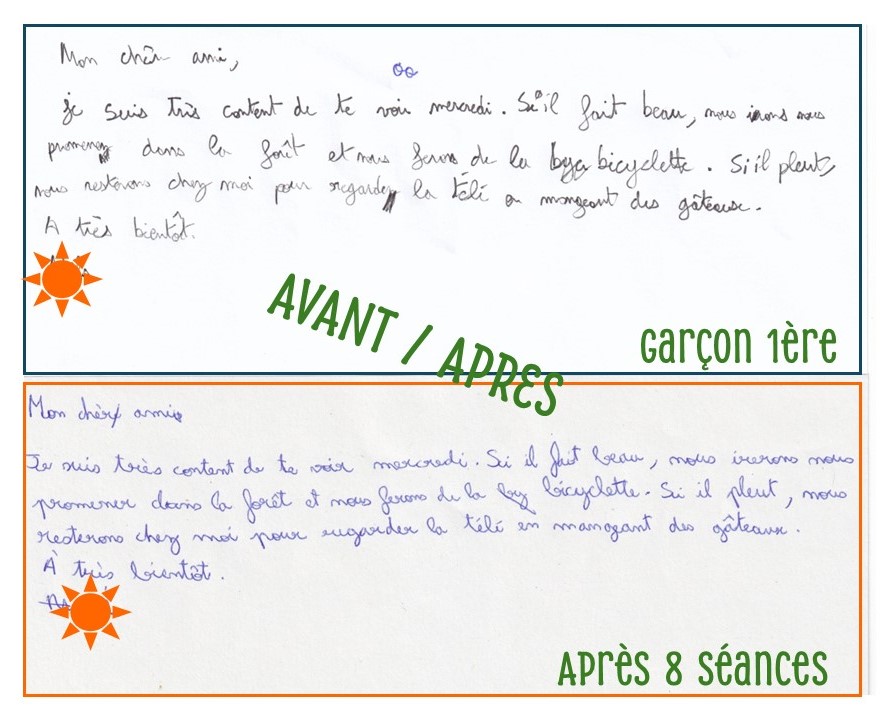 Mon chèr ami,
oo
je suis très content de te voir mercredi. Si il fait beau, nous irons nous
promener dans la forêt et nous ferons de la bya bicyclette. Si il pleut,
nous resterons chez moi pour regarder la télé en mangeant des gâteaux.
A très bientôt.
AVANT / APRES
Garçon 1ère
Mon chèr ami
Je suis très content de te voir mercredi. Si il fait beau, nous irerons nous
promener dans la forêt et nous ferons de la by bicyclette. Si il pleut, nous
resterons chez moi pour regarder la télé en manogeant des gâteaux.
À très bientôt.
Après 8 séances